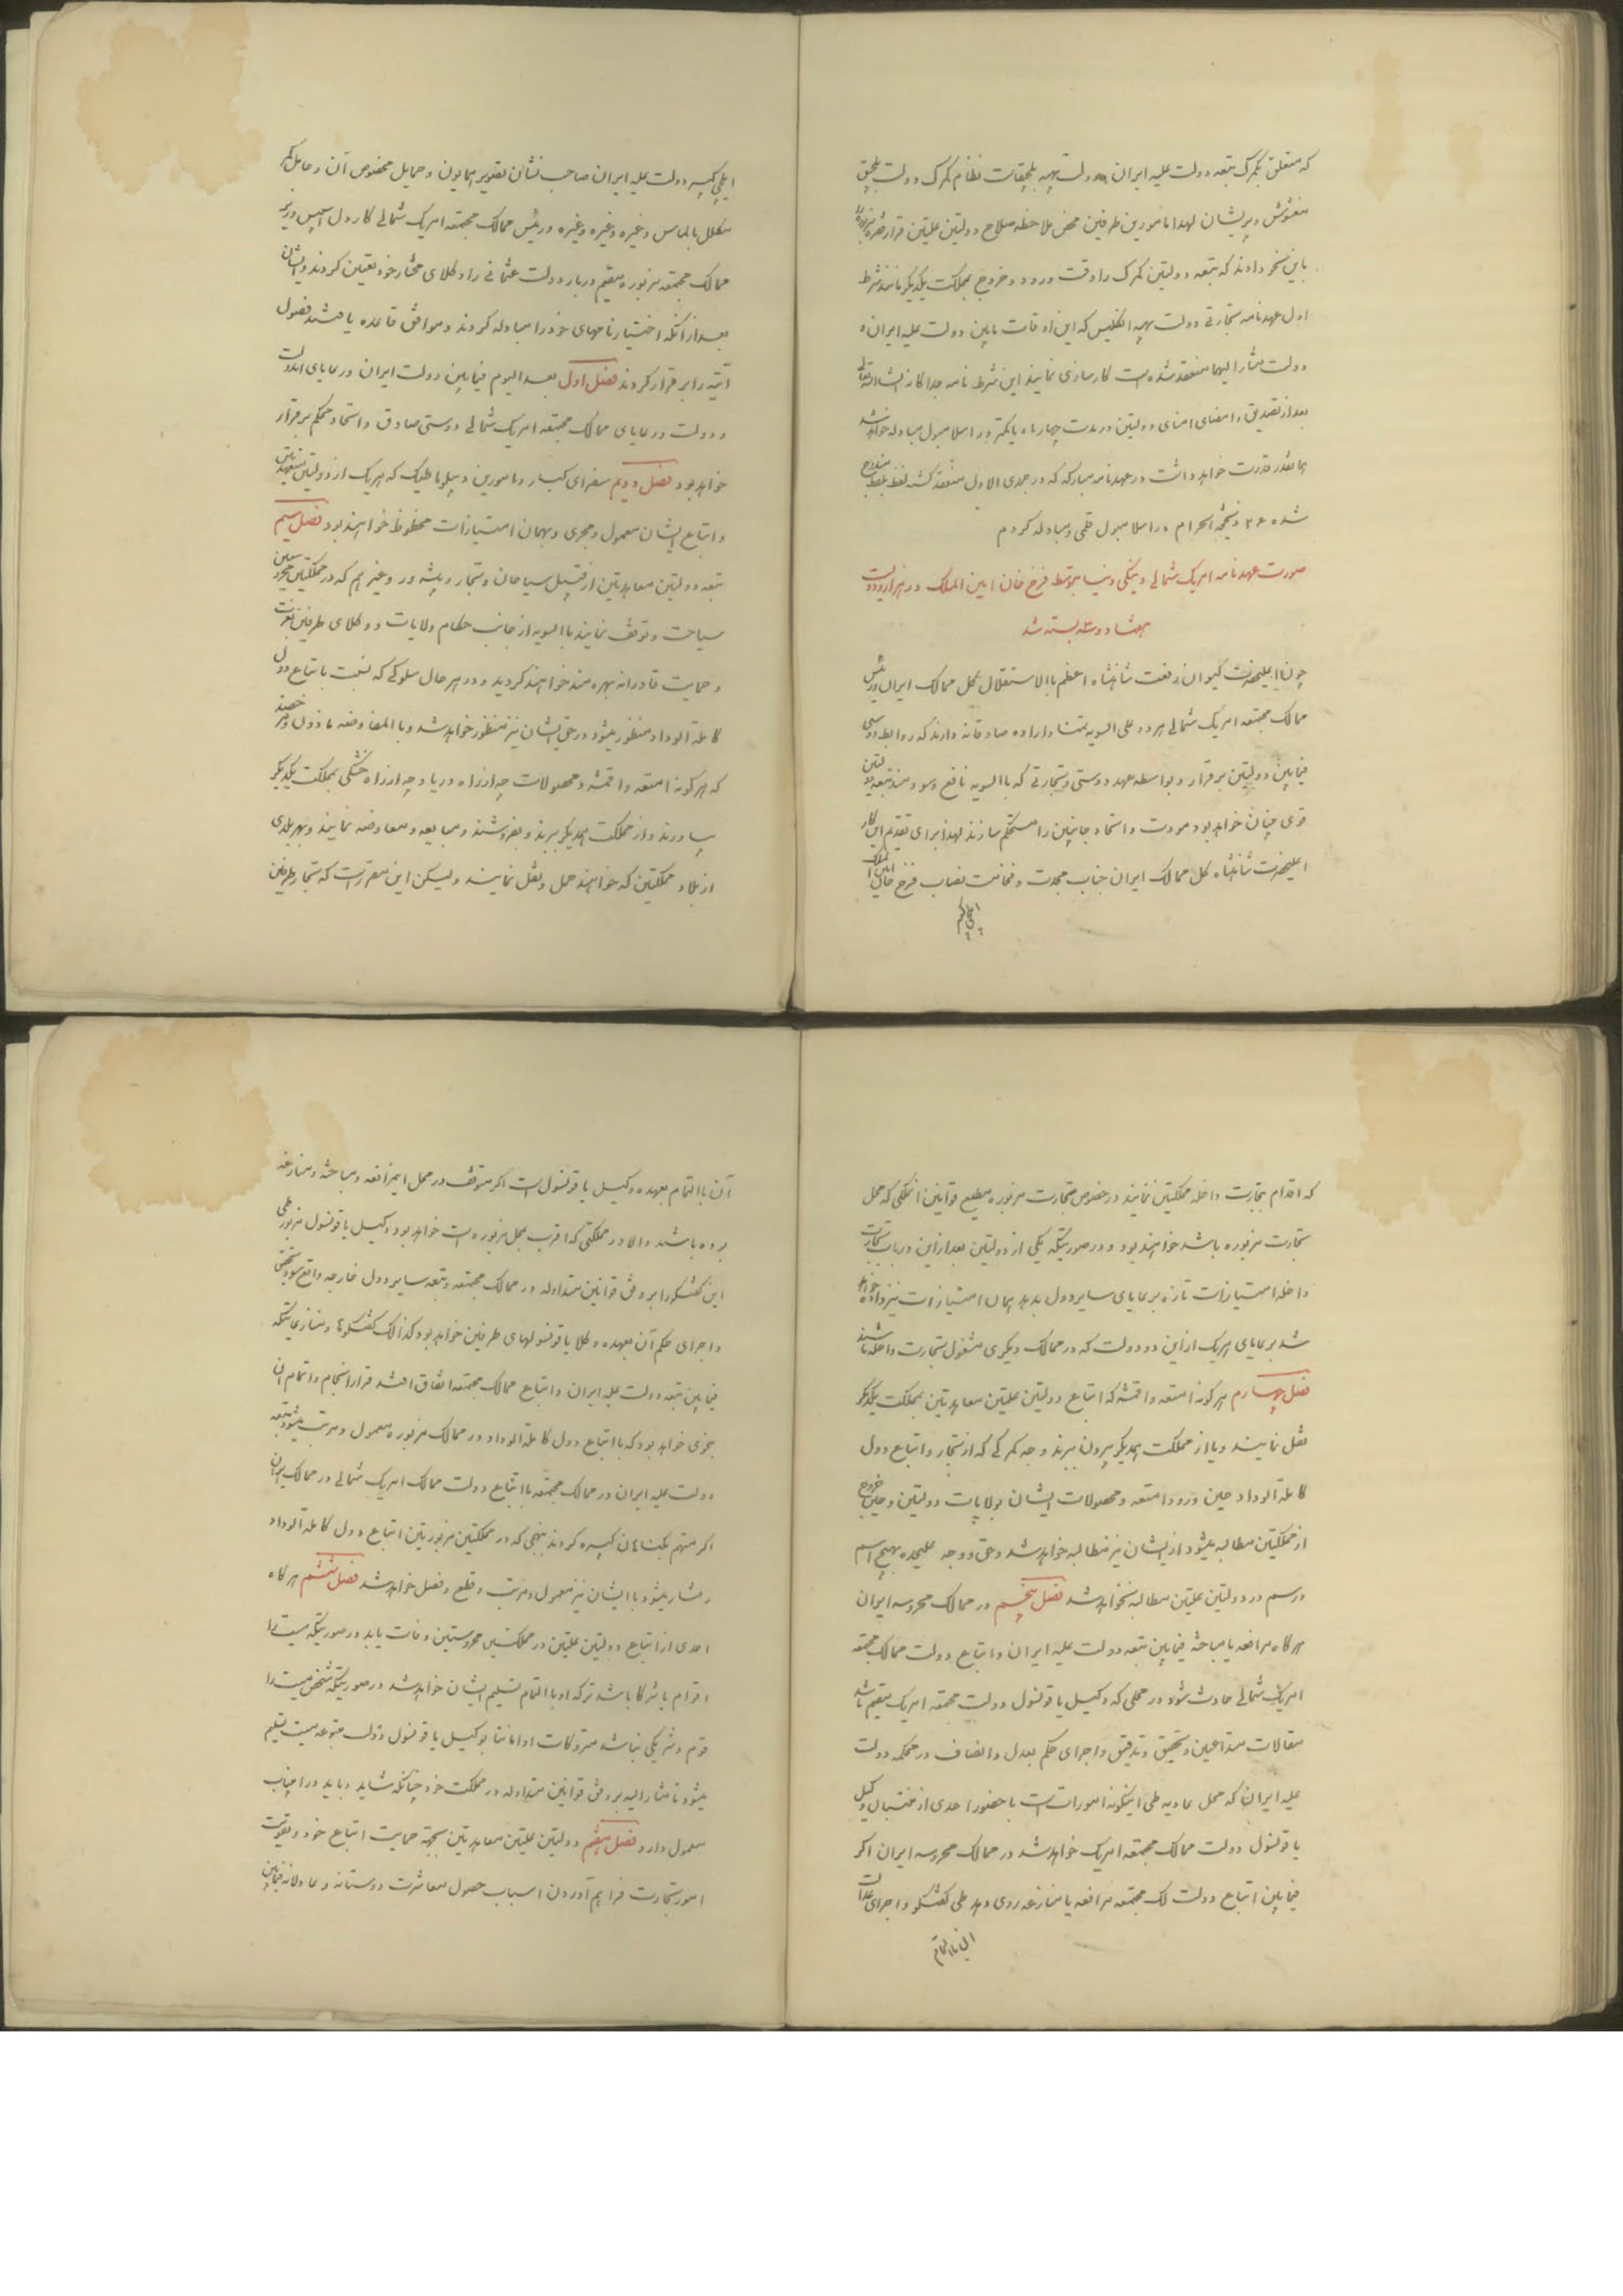 که متعلق بگمرک تبعه دولت علیه ایران و دولت بهیه بلجیقا است نظام گمرک دولت بلجیق
مغشوش و پریشان لهذا مامورین طرفین محض ملاحظه صلاح دولتین علیتین قرار فقره مزبوره را
باین نحو دادند که تبعه دولتین گمرک را وقت ورود و خروج بمملکت یکدیگر مانند شرط
اول عهدنامه تجارتی دولت بهیه انگلیس که این اوقات مابین دولت علیه ایران و
دولت مشارالیها منعقد شده است کارسازی نمایند این شرط نامه جداگانه انشاءالله تعالی
بعد از تصدیق و امضای امنای دولتین در مدت چهار ماه یا کمتر در اسلامبول مبادله خواهد شد
همانقدر قدرت خواهد داشت در عهدنامه مبارکه که در جمدی الاول منعقد گشته لفظ بلفظ مندرج
شده ۲۶ ذیحجة الحرام در اسلامبول قلمی و مبادله کردم
صورت عهدنامه امریک شمالی و ینگی دنیا بتوسط فرخ خان امین الملک در هزار و دویست
هفتاد و سه بسته شد
چون اعلیحضرت کیوان رفعت شاهنشاه اعظم باالاستقلال کل ممالک ایران و رئیس
ممالک مجتمعه امریک شمالی هر دو علی السویه تمنا و اراده صادقانه دارند که روابط دوستی
فیمابین دولتین برقرار و بواسطه عهد دوستی و تجارتی که باالسویه نافع و سودمند تبعه دولتین
قوی بنیان خواهد بود مودت و اتحاد جانبین را مستحکم سازند لهذا برای تقدیم این کار
اعلیحضرت شاهنشاه کل ممالک ایران جناب مجدت و فخامت نصاب فرخ خان امین الملک
ایلچی کبیر
ایلچی کبیر دولت علیه ایران صاحب نشان تصویر همایون و حمایل مخصوص آن و حامل کمر
مکلل بالماس و غیره و غیره و غیره و رئیس ممالک مجتمعه امریک شمالی کارول اسپنس وزیر
ممالک مجتمعه مزبوره مقیم دربار دولت عثمانی را وکلای مختار خود تعیین کردند و ایشان
بعد از آنکه اختیارنامهای خود را مبادله کردند و موافق قاعده یافتند فصول
آتیه را برقرار کردند فصل اول بعد الیوم فیمابین دولت ایران و رعایای آندولت
و دولت و رعایای ممالک مجتمعه امریک شمالی دوستی صادق و اتحاد محکم برقرار
خواهد بود فصل دویم سفرای کبار و مامورین دیپلوماطیک که هریک از دولتین متعاهدتین
و اتباع ایشان معمول و مجری و بهمان امتیازات محظوظ خواهند بود فصل سیم
تبعه دولتین معاهدتین از قبیل سیاحان و تجار و پیشه ور و غیرهم که در مملکتین محروستین
سیاحت و توقف نمایند باالسویه از جانب حکام ولایات و وکلای طرفین بعزت
و حمایت قادرانه بهره مند خواهند گردید و در هر حال سلوکی که نسبت باتباع دول
کاملة الوداد منظور میشود در حق ایشان نیز منظور خواهد شد و باالمعاوضه ماذون و مرخصند
که هرگونه امتعه و اقمشه و محصولات چه از راه دریا و چه از راه خشکی بمملکت یکدیگر
بیاورند و از مملکت همدیگر ببرند و بفروشند و مبایعه و معاوضه نمایند و بهر بلدی
از بلاد مملکتین که خواهند حمل و نقل نمایند ولیکن این مقرر است که تجار طرفین
که اقدام بتجارت داخله مملکتین نمایند در خصوص تجارت مزبوره مطیع قوانین آنملکی که محل
تجارت مزبوره باشد خواهند بود و در صورتیکه یکی از دولتین بعد از این در باب تجارت
داخله امتیازات تازه برعایای سایر دول بدهد همان امتیازات نیز داده خواهد
شد برعایای هریک از این دو دولت که در ممالک دیگری مشغول تجارت داخله باشند
فصل چهارم هرگونه امتعه و اقمشه که اتباع دولتین علیتین معاهدتین بمملکت یکدیگر
نقل نمایند و یا از مملکت همدیگر بیرون ببرند وجه گمرکی که از تجار و اتباع دول
کاملة الوداد حین ورود امتعه و محصولات ایشان بولایات دولتین و حین خروج
از مملکتین مطالبه میشود از ایشان نیز مطالبه خواهد شد و حق و وجه علیحده بهیچ اسم
و رسم در دولتین علیتین مطالبه نخواهد شد فصل پنجم در ممالک محروسه ایران
هرگاه مرافعه یا مباحثه فیمابین تبعه دولت علیه ایران و اتباع دولت ممالک مجتمعه
امریک شمالی حادث شود در محلی که وکیل یا قونسول دولت مجتمعه امریک مقیم باشد
مقالات متداعیین و تحقیق و تدقیق و اجرای حکم بعدل و انصاف در محکمه دولت
علیه ایران که محل عادیه طی اینگونه امورات است با حضور احدی از منتسبان وکیل
یا قونسول دولت ممالک مجتمعه امریک خواهد شد در ممالک محروسه ایران اگر
فیمابین اتباع دولت لک مجتمعه مرافعه یا منازعه روی دهد طی گفتگو و اجرای عدالت
آن باالتمام
آن باالتمام بعهده وکیل یا قونسول است اگر متوقف در محل این مرافعه و مباحثه و منازعه
بوده باشد والا در مملکتی که اقرب بمحل مزبوره است خواهد بود وکیل یا قونسول مزبور طی
این گفتگو را بر وفق قوانین متداوله در ممالک مجتمعه و تبعه سایر دول خارجه واقع شود تحقیق
و اجرای حکم آن بعهده وکلا یا قونسولهای طرفین خواهد بود کذالک گفتگوها و منازعاتیکه
فیمابین تبعه دولت علیه ایران و اتباع ممالک مجتمعه اتفاق افتد قرار انجام و اتمام آن
بنحوی خواهد بود که بااتباع دول کاملة الوداد در ممالک مزبوره معمول و مرتب میشود تبعه
دولت علیه ایران در ممالک مجتمعه بااتباع دولت ممالک امریک شمالی در ممالک ایران
اگر متهم بگناهان کبیره گردند بنهجی که در مملکتین مزبورتین اتباع دول کاملة الوداد
رفتار میشود باایشان نیز معمول و مرتب و قطع و فصل خواهد شد فصل ششم هرگاه
احدی از اتباع دولتین علیتین در مملکتین محروستین وفات یابد در صورتیکه میت را
اقوام یا شرکا باشد ترکه او باالتمام تسلیم ایشان خواهد شد در صورتیکه شخص میت را
قوم و شریکی نباشد متروکات او امانتا بوکیل یا قونسول دولت متبوعه میت تسلیم
میشود تا مشارالیه بر وفق قوانین متداوله در مملکت خود چنانکه شاید و باید در اینباب
معمول دارد فصل هفتم دولتین علیتین معاهدتین بجهة حمایت اتباع خود و تقویت
امور تجارت فراهم آوردن اسباب حصول معاشرت دوستانه و عادلانه فیمابین